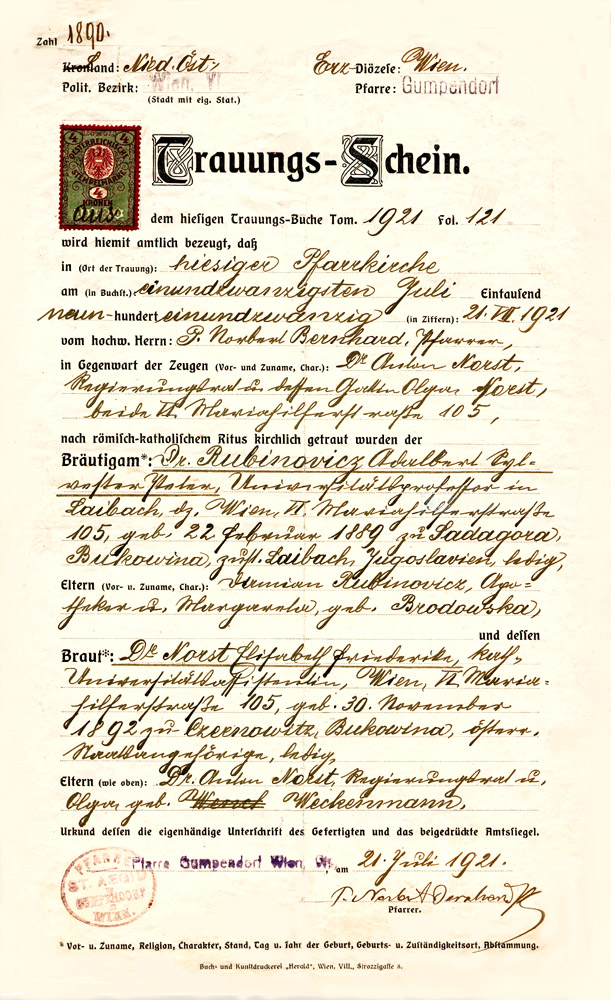 Zahl 1890.
Kronland: Nied. Öst. Erz-Diözese: Wien.
Polit. Bezirk: Wien, VI Pfarre: Gumpendorf
(Stadt mit eig. Stat.)
4 4
ÖSTERREICHISCHE
STEMPELMARKE
4
KRONEN
Trauungs-Schein.
Aus dem hiesigen Trauungs-Buche Tom. 1921 Fol. 121
wird hiemit amtlich bezeugt, daß
in (Ort der Trauung): hiesiger Pfarrkirche
am (in Buchst.): einundzwanzigsten Juli Eintausend
neun-hundert einundzwanzig (in Ziffern): 21. VII. 1921
vom hochw. Herrn: P. Norbert Bernhard, Pfarrer,
in Gegenwart der Zeugen (Vor- und Zuname, Char.): Dr Anton Norst,
Regierungsrat u. dessen Gattin Olga Norst,
beide VI. Mariahilferstraße 105,
nach römisch-katholischem Ritus kirchlich getraut wurden der
Bräutigam*: Dr. Rubinovicz Adalbert Syl-
vester Peter, Universitätsprofessor in
Laibach, dz. Wien, VI. Mariahilferstraße
105, geb. 22 Februar 1889 zu Sadagora,
Bukowina, zust. Laibach, Jugoslavien, ledig,
Eltern (Vor- u. Zuname, Char.): Damian Rubinovicz, Apo-
theker u. Margareta, geb. Brodowska,
und dessen
Braut*: Dr Norst Elisabeth Friederike, kath.
Universitätsassistentin, Wien, VI. Maria-
hilferstraße 105, geb. 30. November
1892 zu Czernowitz, Bukowina, österr.
Staatsangehörige, ledig,
Eltern (wie oben): Dr. Anton Norst, Regierungsrat u.
Olga, geb. Weckenmann.
Urkund dessen die eigenhändige Unterschrift des Gefertigten und das beigedrückte Amtssiegel.
Pfarre Gumpendorf Wien, VI., am 21. Juli 1921.
PFARRE
ST. AEGID
GUMPENDORF
WIEN.
P. Norbert Bernhard
Pfarrer.
* Vor- u. Zuname, Religion, Charakter, Stand, Tag u. Jahr der Geburt, Geburts- u. Zuständigkeitsort, Abstammung.
Buch- und Kunstdruckerei „Herold“, Wien, VIII., Strozzigasse 8.